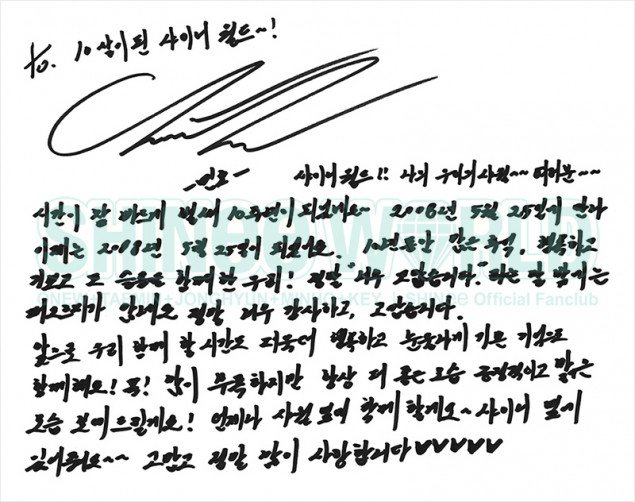 to. 10살이 된 샤이니 월드~!
-민호-
샤이니월드!! 나의 우리의 사랑~~ 여러분~~
시간이 참 빠르게 벌써 10주년이 되었네요~ 2008년 5월 25일이
이제는 2018년 5월 25일이 되었네요. 10년동안 많은 추억, 행복하고
기쁘고 그 순간을 함께 한 우리! 정말 너무 고맙습니다. 라는 말 밖에는
떠오르지가 않네요 정말 너무 감사하고, 고맙습니다.
앞으로 우리 함께 할 시간도 더욱더 행복하고 눈부시게 기쁜 기억으로
함께해요! 꼭! 많이 부족하지만 항상 더 좋은 모습 긍정적이고 밝은
모습 보여드릴게요! 언제나 사랑 함께 할게요~ 샤이니 옆에
있어줘요~~ 고맙고 정말 많이 사랑합니다♥♥♥♥♥
SHINee WORLD
ONEW+TAEMIN+JONGHYUN+MINHO+KEY SHINee Official Fanclub